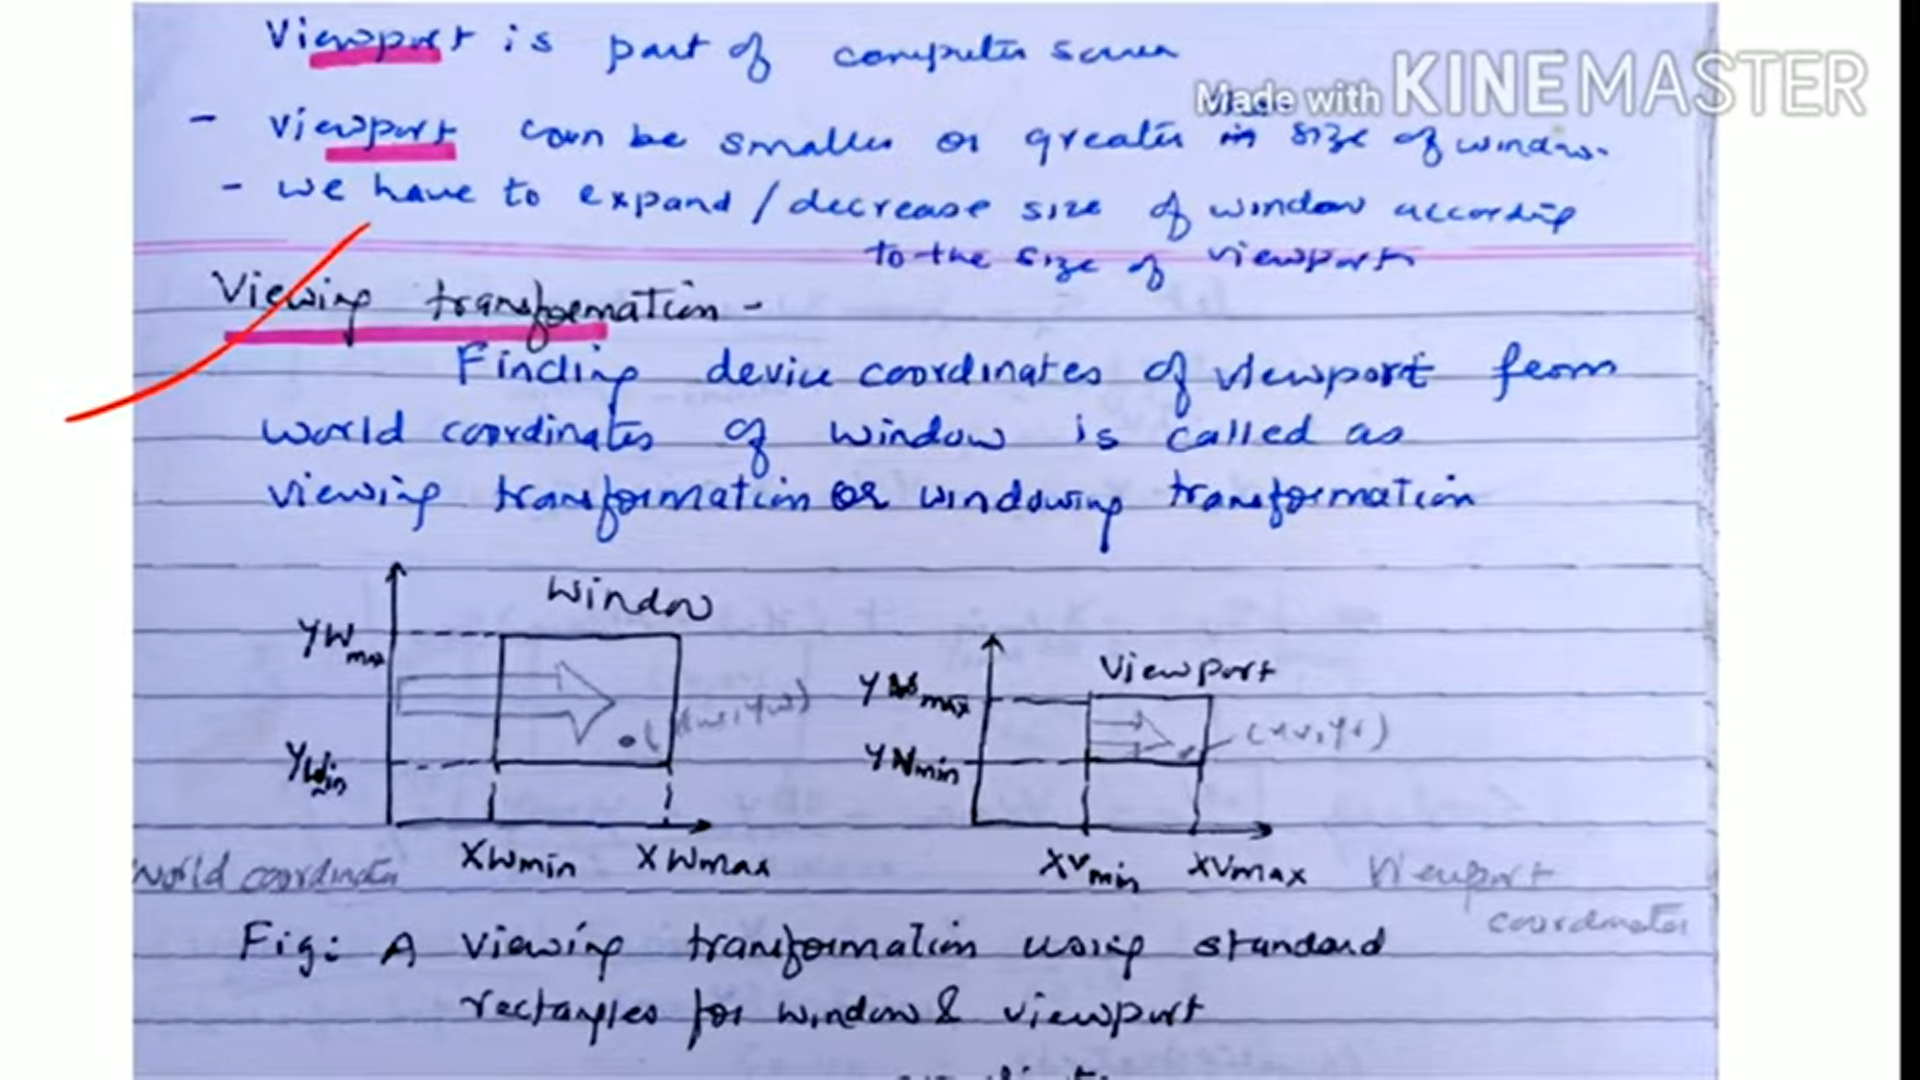 Viewport is part of computer screen
Made with KINEMASTER
- viewport can be smaller or greater size of window.
- we have to expand / decrease size of window according
to the size of viewport
Viewing transformation -
Finding device coordinates of viewport from
world coordinates of window is called as
viewing transformation or windowing transformation
Window
YWmax
Viewport
YVmax
(xw, yw)
(xv, yv)
YWmin
YVmin
XWmin XWmax
XVmin XVmax
World coordinates
Viewport
coordinates
Fig: A viewing transformation using standard
rectangles for window & viewport